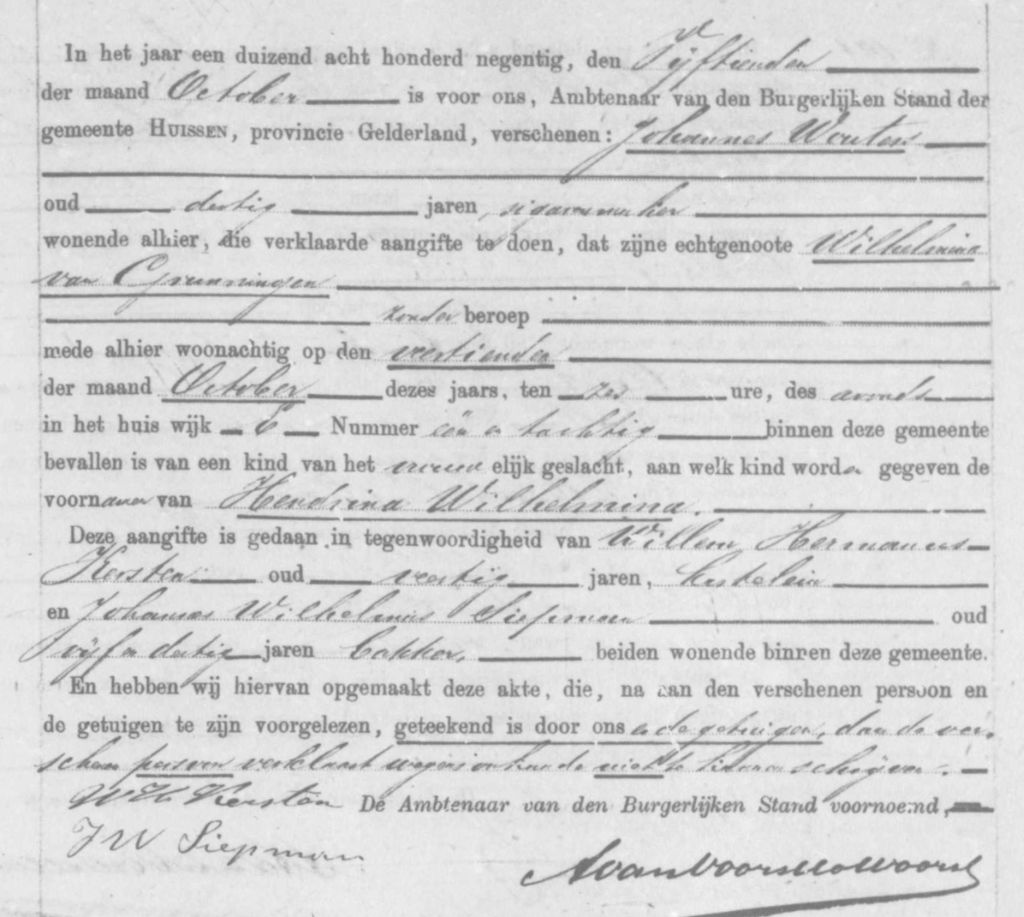 In het jaar een duizend acht honderd negentig, den Vijftienden
der maand October is voor ons, Ambtenaar van den Burgerlijken Stand der
gemeente HUISSEN, provincie Gelderland, verschenen: Johannes Wouters
oud dertig jaren, sigarenmaker
wonende alhier, die verklaarde aangifte te doen, dat zijne echtgenoote Wilhelmina
van Grunningen
zonder beroep
mede alhier woonachtig op den veertienden
der maand October dezes jaars, ten zes ure, des avonds
in het huis wijk E Nummer één en tachtig binnen deze gemeente
bevallen is van een kind van het vrouwelijk geslacht, aan welk kind worden gegeven de
voornamen van Hendrina Wilhelmina.
Deze aangifte is gedaan in tegenwoordigheid van Willem Hermanus
Kersten oud veertig jaren, kastelein
en Johannes Wilhelmus Siepman oud
vijf en dertig jaren bakker, beiden wonende binnen deze gemeente.
En hebben wij hiervan opgemaakt deze akte, die, na aan den verschenen persoon en
de getuigen te zijn voorgelezen, geteekend is door ons en de getuigen, dan de ver-
schenen persoon verklaart wegens onkunde niet te kunnen schrijven.
WH Kersten De Ambtenaar van den Burgerlijken Stand voornoemd,
JW Siepman